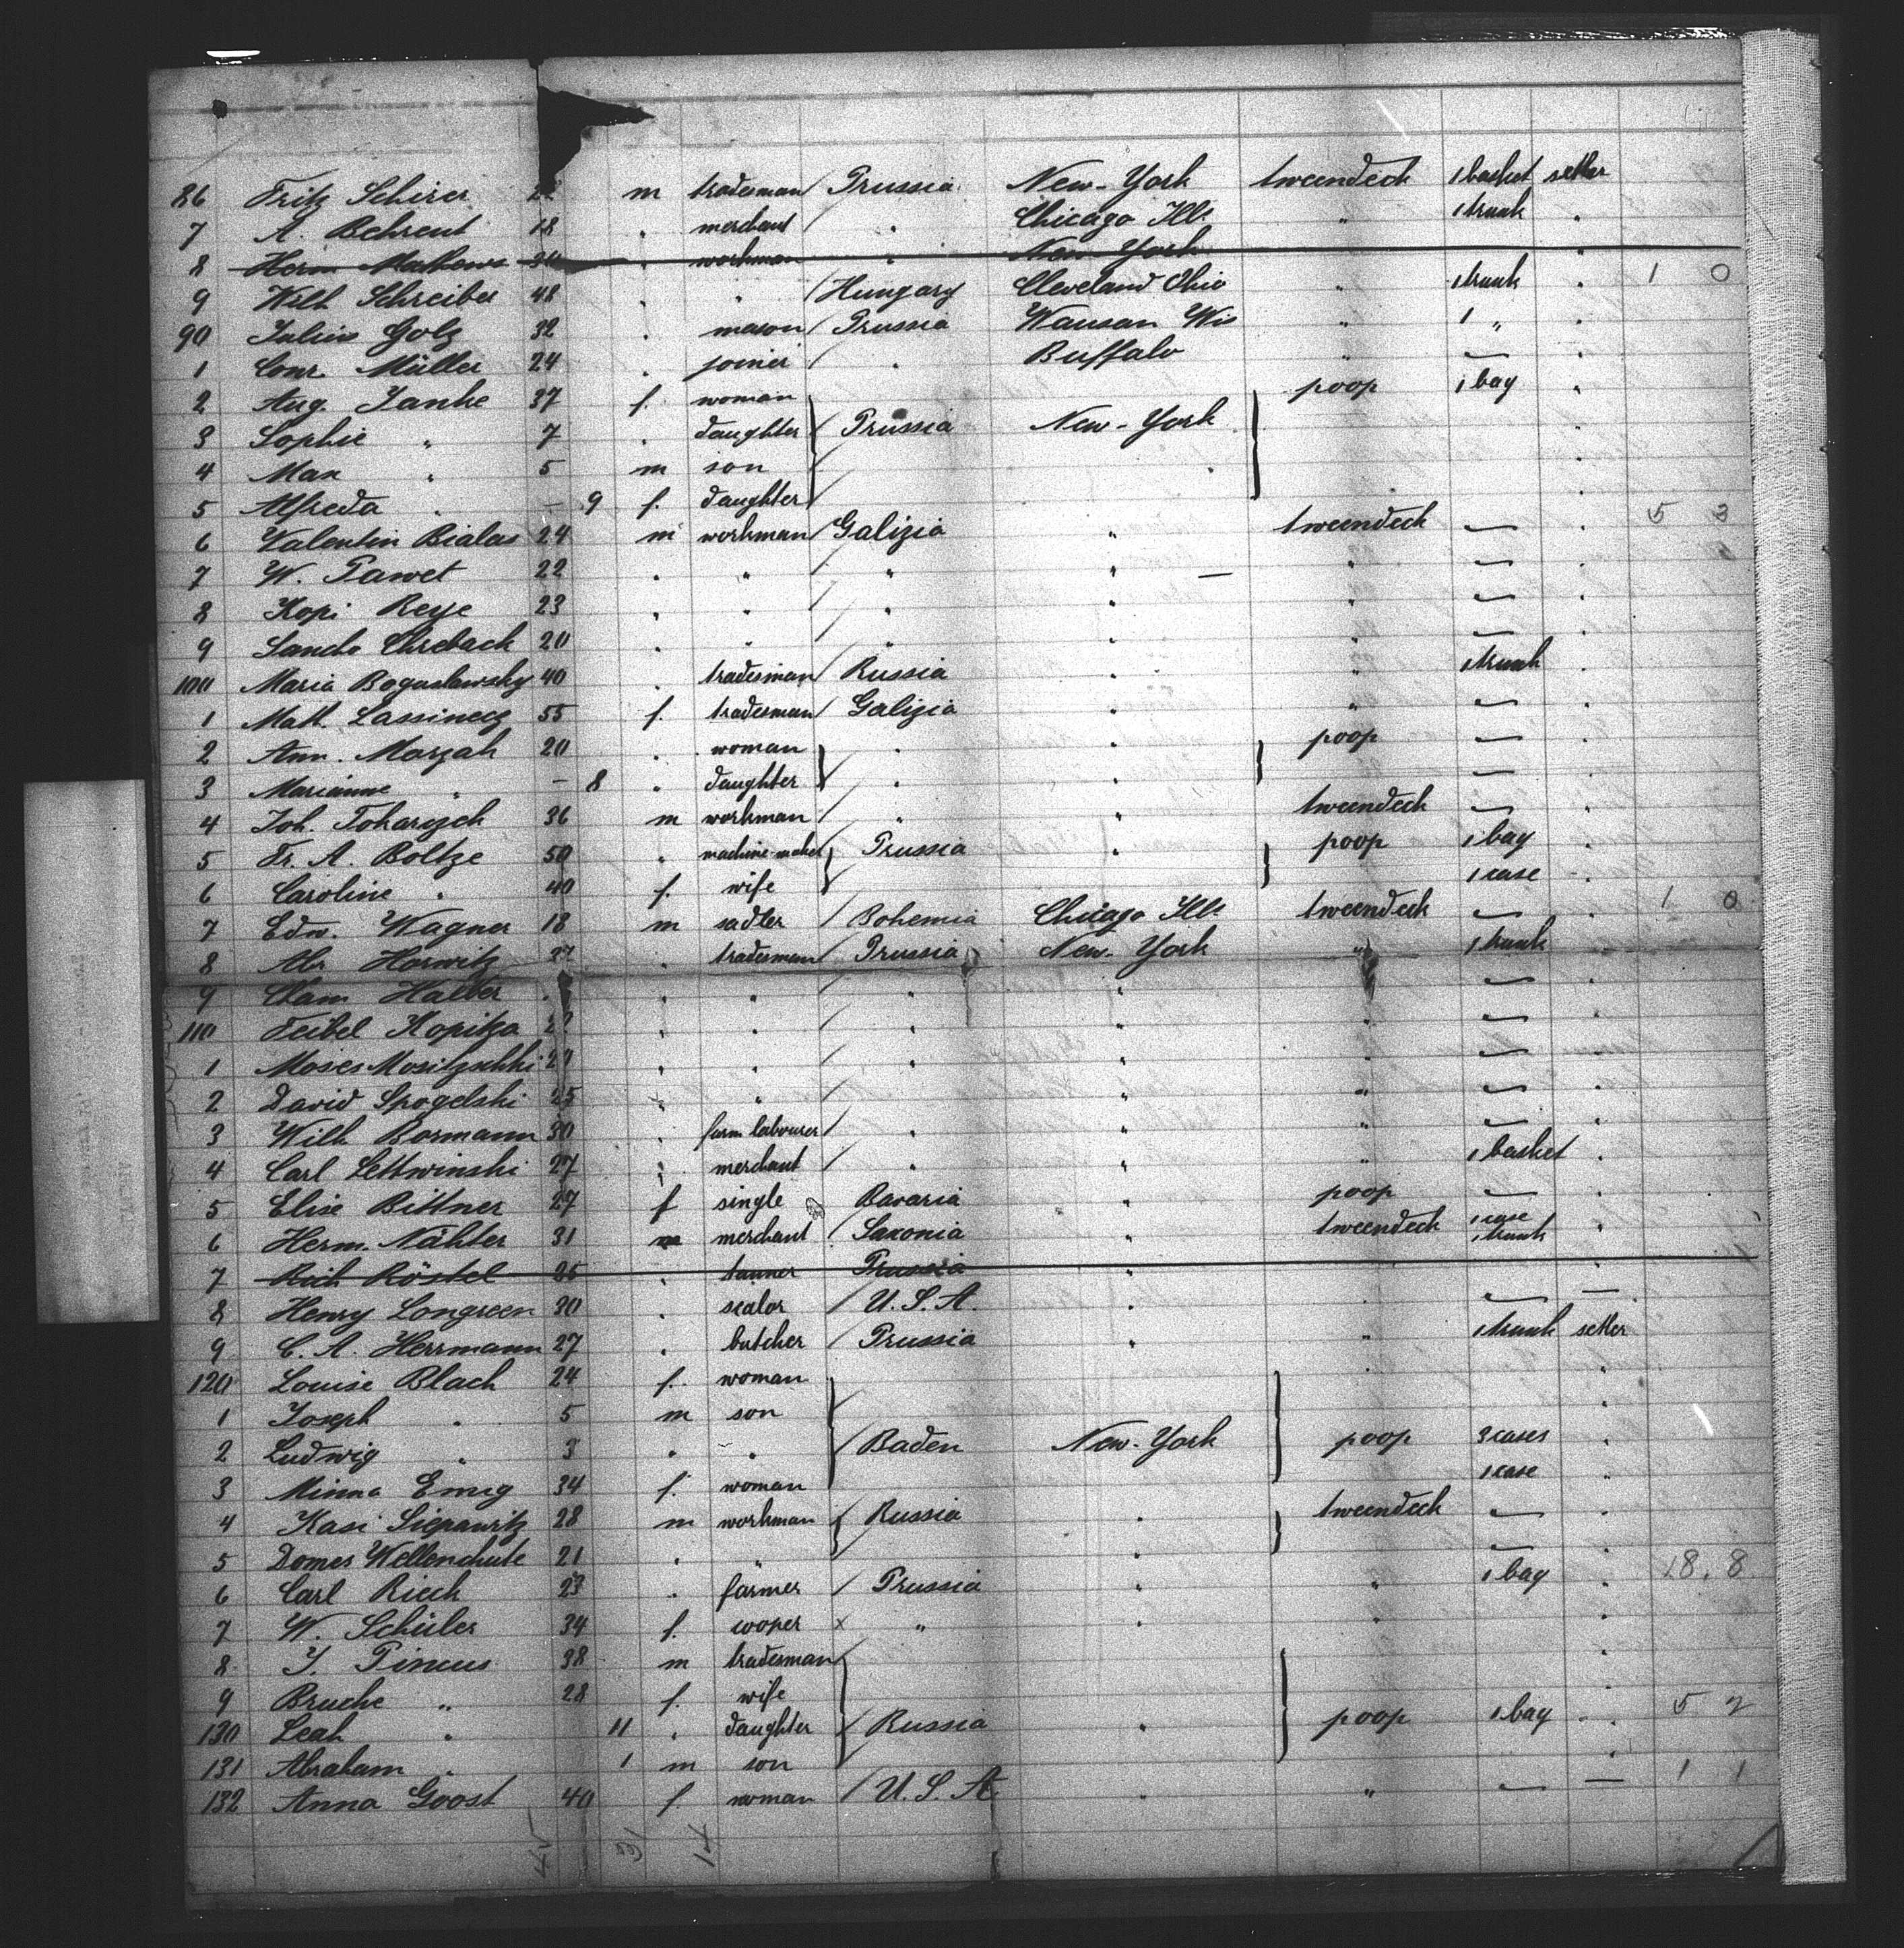 86 Fritz Schirer 22 m tradesman / Prussia New-York tweendeck 1 basket settler
7 A. Behrent 18 " merchant / " Chicago Ills " 1 trunk "
8 Herm workman " New-York "
9 Wilh Schreiber 48 " " / Hungary Cleveland Ohio " 1 trunk " 1 0
90 Julius Golz 32 " mason / Prussia Wausau Wis " 1 " "
1 Conr. Müller 24 " joiner / " Buffalo " —
2 Aug. Janke 37 f. woman poop 1 bag "
3 Sophie " 7 " daughter / Prussia New-York "
4 Max " 5 m son / " "
5 Alfreda " — 9 f. daughter / "
6 Valentin Bialas 24 m workman / Galizia " tweendeck — " 5 3
7 W. Pawet 22 " " / " " — " — "
8 Kopi Reye 23 " " / " " " — "
9 Sancho Chrebach 20 " " / " " " — "
100 Maria Boguslawsky 40 " tradesman / Russia " " 1 trunk "
1 Matt. Lassinecz 55 f. tradesman / Galizia " " — "
2 Ann. Marzah 20 " woman / " " poop — "
3 Marianne " — 8 " daughter / " " — "
4 Joh. Tokarzch 36 m workman / " " tweendeck — "
5 Fr. A. Boltze 50 " machine-maker / Prussia " poop 1 bag "
6 Caroline " 40 f. wife 1 case "
7 Edw. Wagner 18 m sadler / Bohemia Chicago Ills tweendeck — " 1 0
8 Abr Horwitz 27 " tradesman / Prussia New-York " 1 trunk "
9 Cham Halber " " / " " —
110 Feibel Kopitza " " / " " " — "
1 Moses Mositzschki " " / " " " — "
2 David Spogelski 25 " " / " " " — "
3 Wilh Bormann 30 " farm labourer / " " " — "
4 Carl Lettwinski 27 " merchant / " " " 1 basket "
5 Elise Bittner 27 f single Bavaria " poop —
6 Herm. Nähter 31 m merchant / Saxonia " tweendeck 1 case 1 trunk "
7 Rich Röstel 25 " tanner Prussia " "
8 Henry Longreen 30 " sealor / U.S.A. " " — —
9 C. A. Herrmann 27 " butcher / Prussia " " 1 trunk settler
120 Louise Blach 24 f. woman "
1 Joseph " 5 m son / "
2 Ludwig " 3 " " / Baden New-York poop 3 cases "
3 Minna Emig 34 f. woman 1 case "
4 Kasi Siepawitz 28 m workman / Russia " tweendeck — "
5 Domes Wellenchute 21 " " " — "
6 Carl Rieck 23 " farmer / Prussia " " 1 bag " 18. 8
7 W. Schüler 34 f. cooper x " " " "
8 J. Pincus 38 m tradesman / "
9 Bruche " 28 f. wife "
130 Leah " 11 " daughter / Russia " poop 1 bag " 5 2
131 Abraham " 1 m son "
132 Anna Goost 40 f. woman / U.S.A. " " — — 1 1
31 14